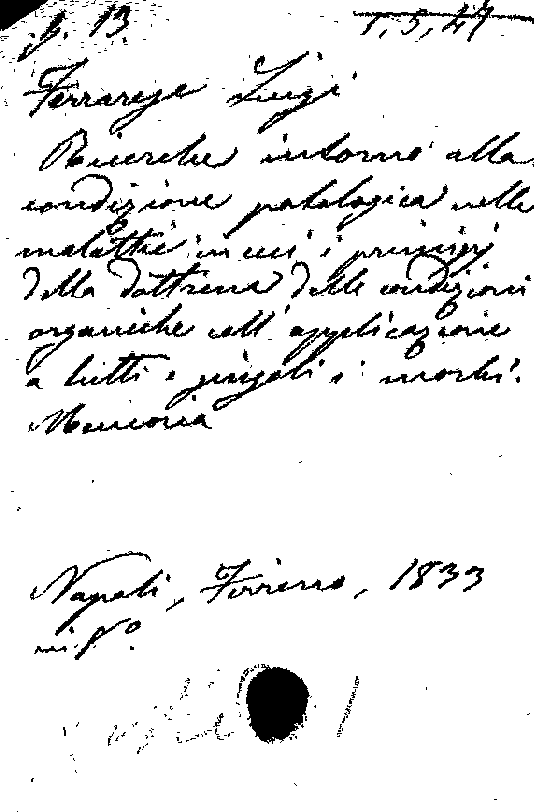 p. 13 1, 5, 47
Ferrarese Luigi
Ricerche intorno alla
condizione patologica nelle
malattie in cui i principj
della dottrina delle condizioni
organiche coll' applicazione
a tutti e singoli i morbi.
Memoria
Napoli, , 1833
in 8°